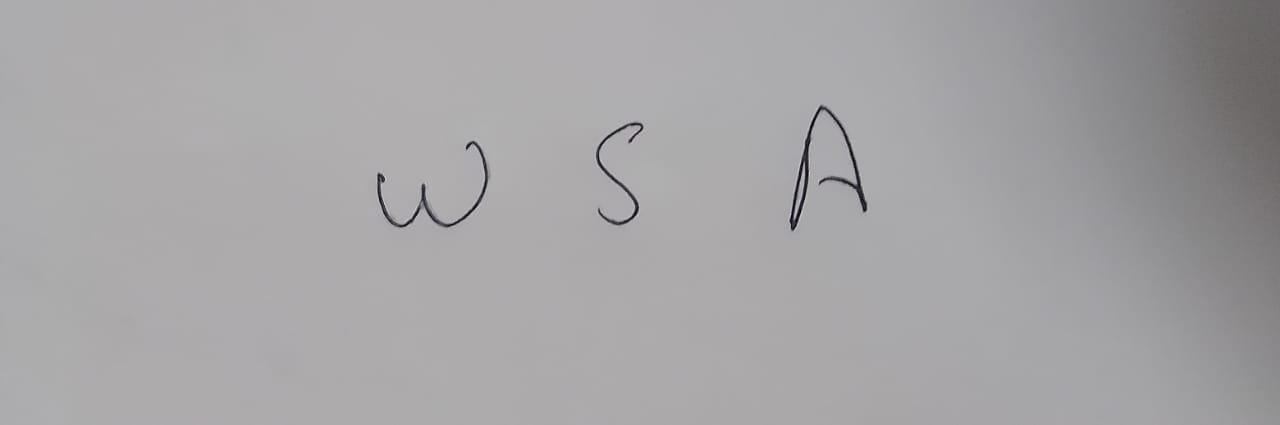 W S A